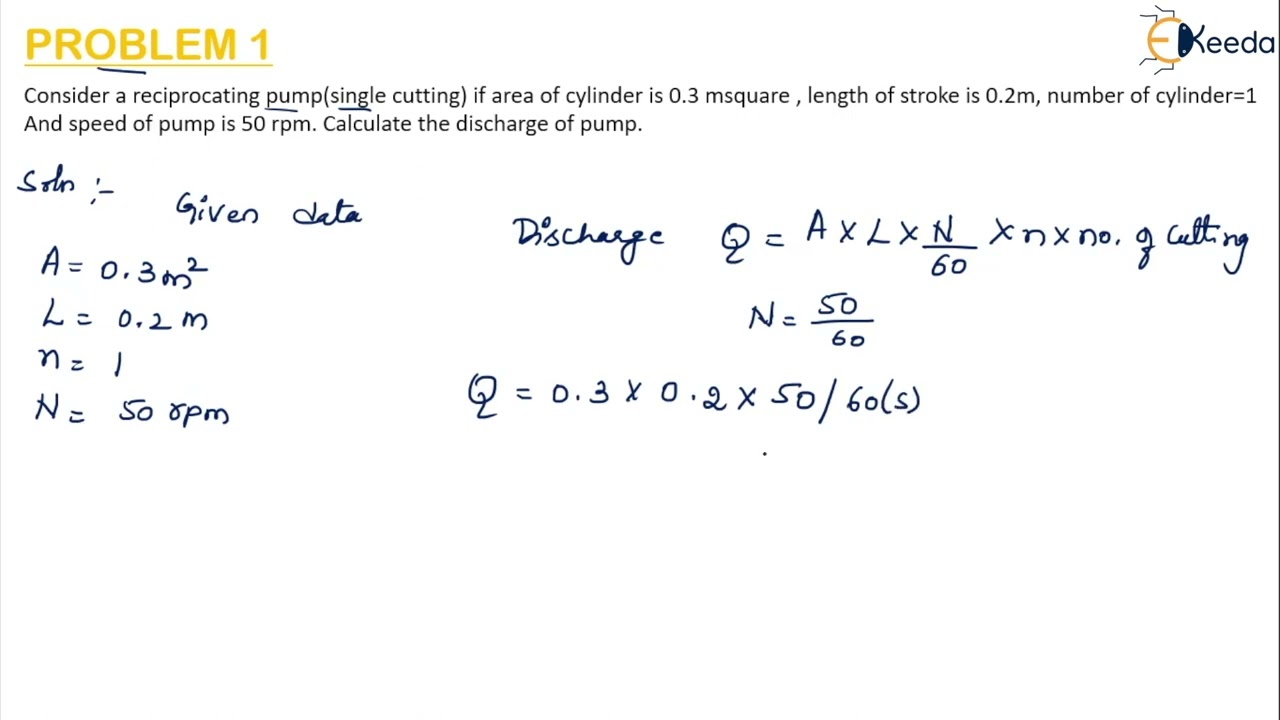 PROBLEM 1
EKeeda
Consider a reciprocating pump(single cutting) if area of cylinder is 0.3 msquare , length of stroke is 0.2m, number of cylinder=1
And speed of pump is 50 rpm. Calculate the discharge of pump.
Soln :-
Given data
A = 0.3 m²
L = 0.2 m
n = 1
N = 50 rpm
Discharge Q = A × L × N/60 × n × no. of cutting
N = 50/60
Q = 0.3 × 0.2 × 50/60(s)